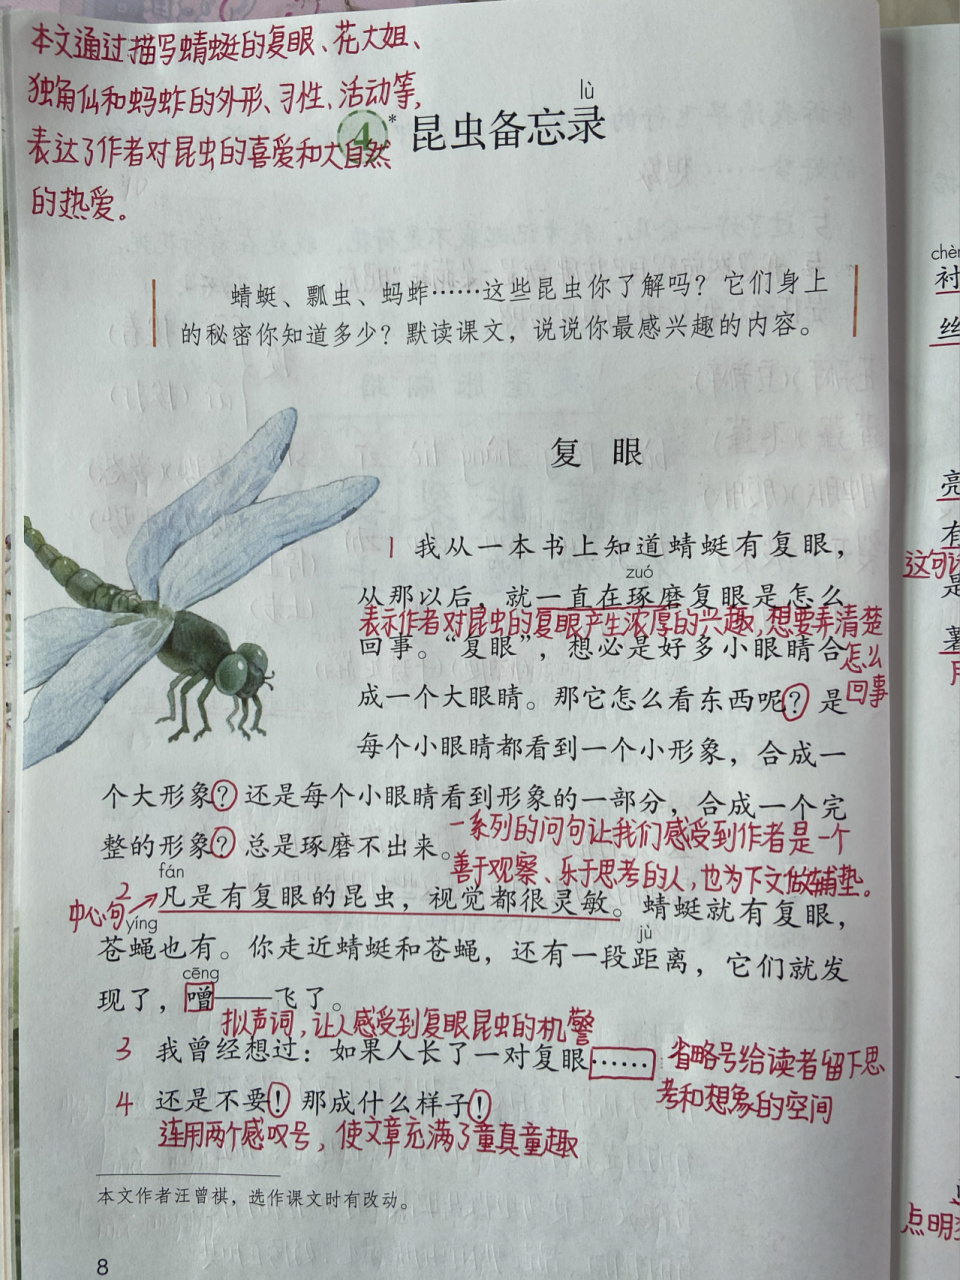 本文通过描写蜻蜓的复眼、花大姐、
独角仙和蚂蚱的外形、习性、活动等,
表达了作者对昆虫的喜爱和大自然
的热爱。
lù
4* 昆虫备忘录
蜻蜓、瓢虫、蚂蚱……这些昆虫你了解吗？它们身上
的秘密你知道多少？默读课文，说说你最感兴趣的内容。
复 眼
1 我从一本书上知道蜻蜓有复眼，
zuó
从那以后，就一直在琢磨复眼是怎么
表示作者对昆虫的复眼产生浓厚的兴趣,想要弄清楚
怎么
回事
回事。“复眼”，想必是好多小眼睛合
成一个大眼睛。那它怎么看东西呢？是
每个小眼睛都看到一个小形象，合成一
个大形象？还是每个小眼睛看到形象的一部分，合成一个完
整的形象？总是琢磨不出来。
一系列的问句让我们感受到作者是一个
善于观察、乐于思考的人,也为下文做铺垫。
fán
中心句
2 凡是有复眼的昆虫，视觉都很灵敏。蜻蜓就有复眼，
yíng
jù
苍蝇也有。你走近蜻蜓和苍蝇，还有一段距离，它们就发
cēng
现了，噌——飞了。
拟声词,让人感受到复眼昆虫的机警
3 我曾经想过：如果人长了一对复眼……
省略号给读者留下思
考和想象的空间
4 还是不要！那成什么样子！
连用两个感叹号,使文章充满了童真童趣
本文作者汪曾祺，选作课文时有改动。
8
chèn
衬
丝
亮
有
这句话
是
薯
点明